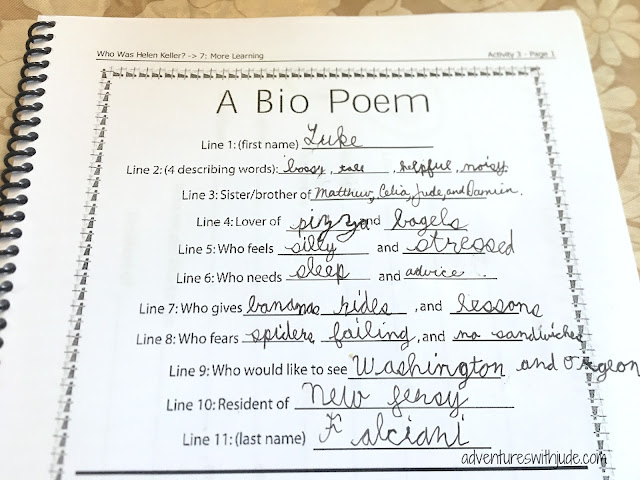 Who Was Helen Keller? -> 7: More Learning Activity 3 - Page 1
A Bio Poem
Line 1: (first name) Luke
Line 2: (4 describing words): bossy, tall, helpful, noisy.
Line 3: Sister/brother of Matthew, Celia, Jude, and Damien.
Line 4: Lover of pizza and bagels
Line 5: Who feels silly and stressed
Line 6: Who needs sleep and advice.
Line 7: Who gives bananas rides, and lessons
Line 8: Who fears spiders failing, and no sandwiches
Line 9: Who would like to see Washington and Oregon
Line 10: Resident of New Jersy
Line 11: (last name) Falciani
adventureswithjude.com